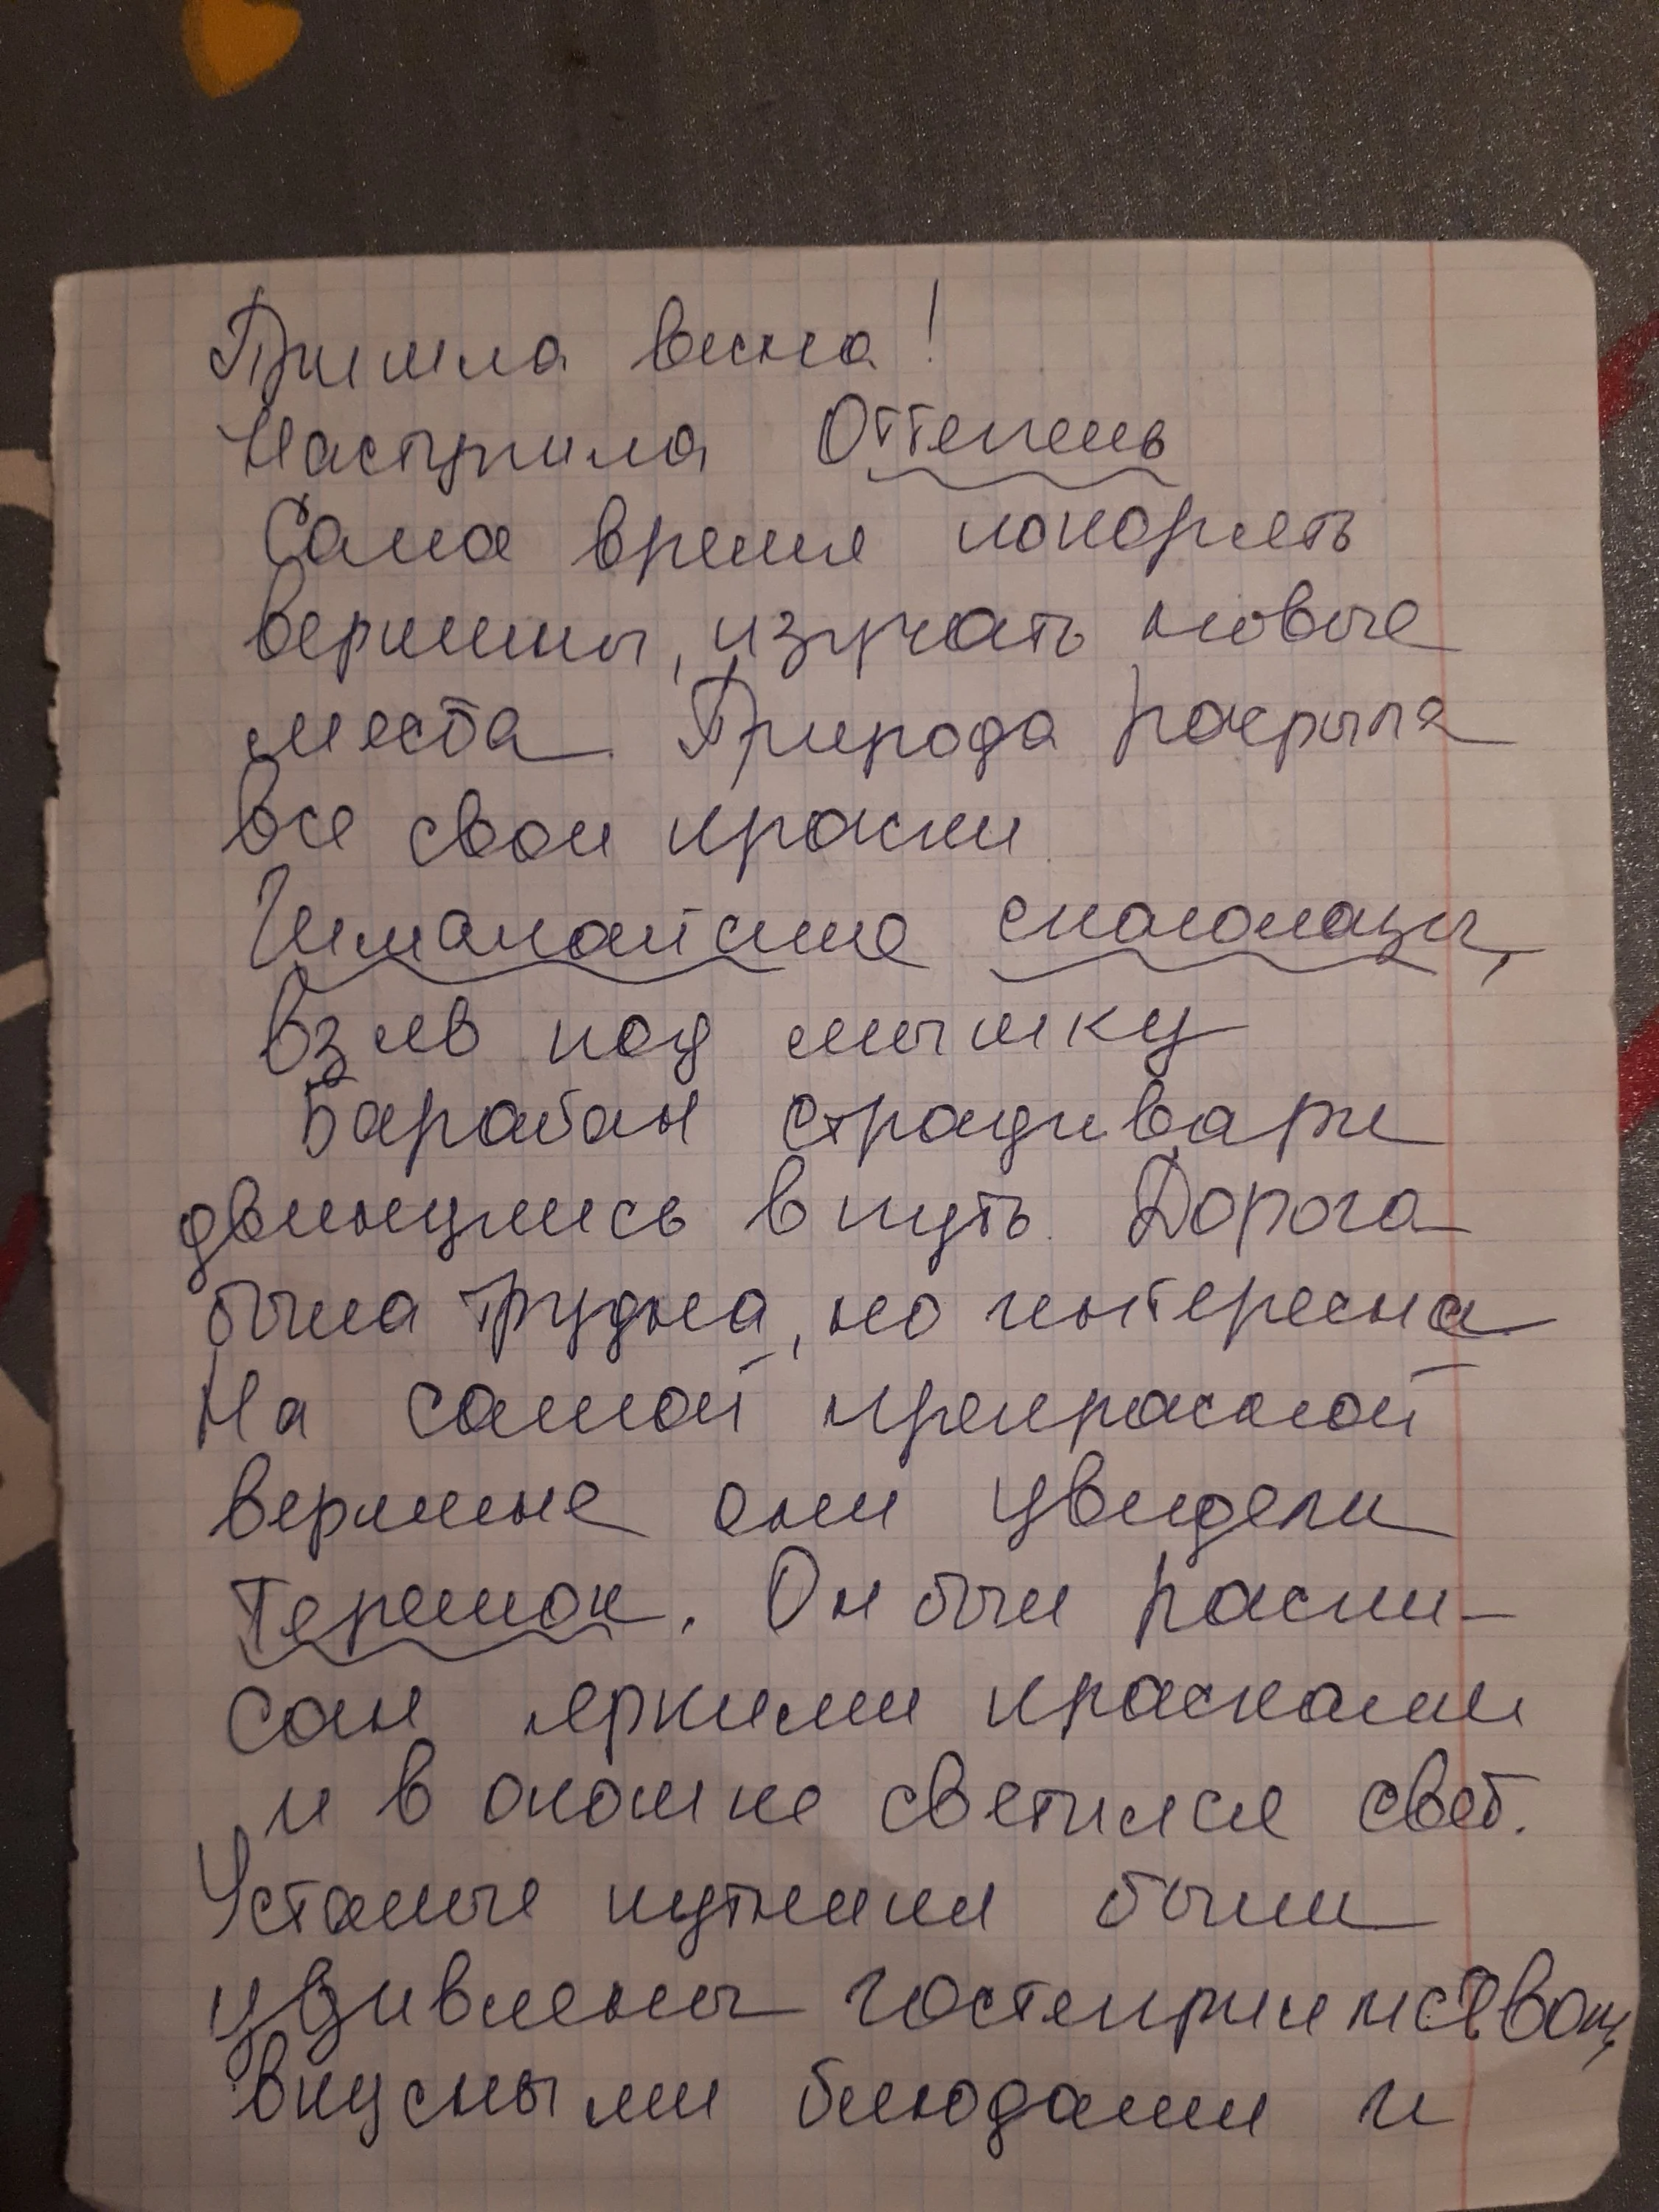 Пришла весна!
Наступила Оттепель
Самое время покорять
вершины, изучать новые
места. Природа раскрыла
все свои краски.
Гималайские скалолазы,
взяв под мышку
Барабан страдивари
двинулись в путь. Дорога
была трудна, но интересна.
На самой прекрасной
вершине они увидели
Теремок. Он был распи-
сан яркими красками
и в окошке светился свет.
Усталые путники были
удивлены гостеприимством,
вкусными блюдами и